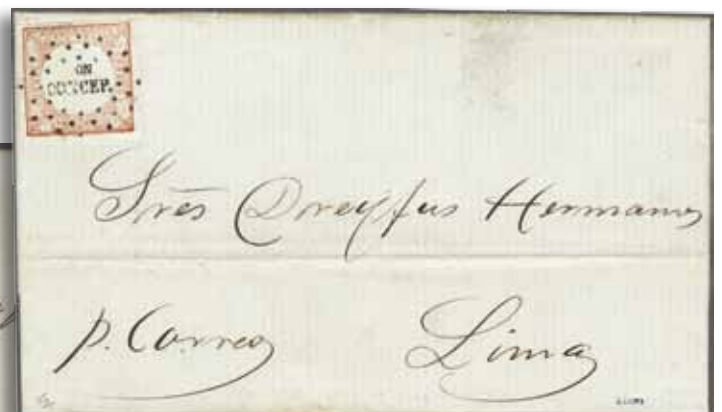 ON
CONCEP.
Sres Dreyfus Hermanos
p. Correo Lima